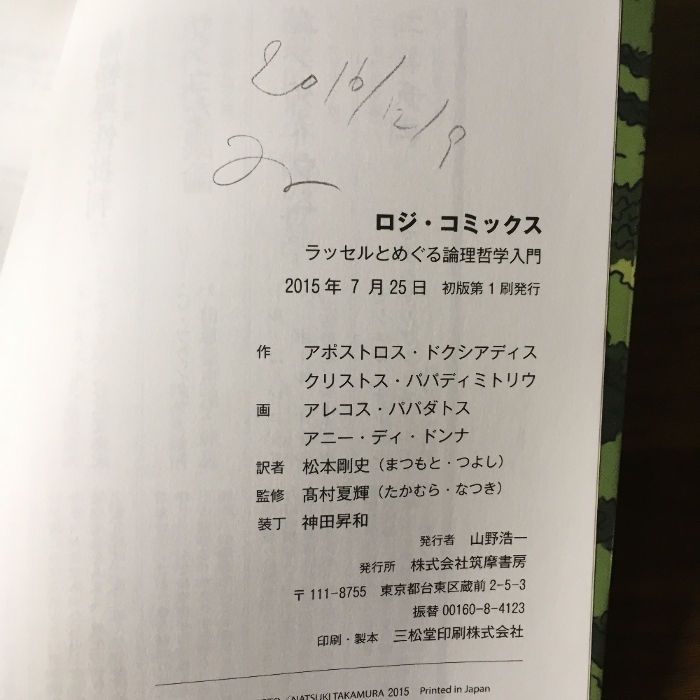 2016/12/9
ロジ・コミックス
ラッセルとめぐる論理哲学入門
2015年7月25日 初版第1刷発行
作 アポストロス・ドクシアディス
クリストス・パパディミトリウ
画 アレコス・パパダトス
アニー・ディ・ドンナ
訳者 松本剛史（まつもと・つよし）
監修 髙村夏輝（たかむら・なつき）
装丁 神田昇和
発行者 山野浩一
発行所 株式会社筑摩書房
〒111-8755 東京都台東区蔵前2-5-3
振替00160-8-4123
印刷・製本 三松堂印刷株式会社
NATSUKI TAKAMURA 2015 Printed in Japan